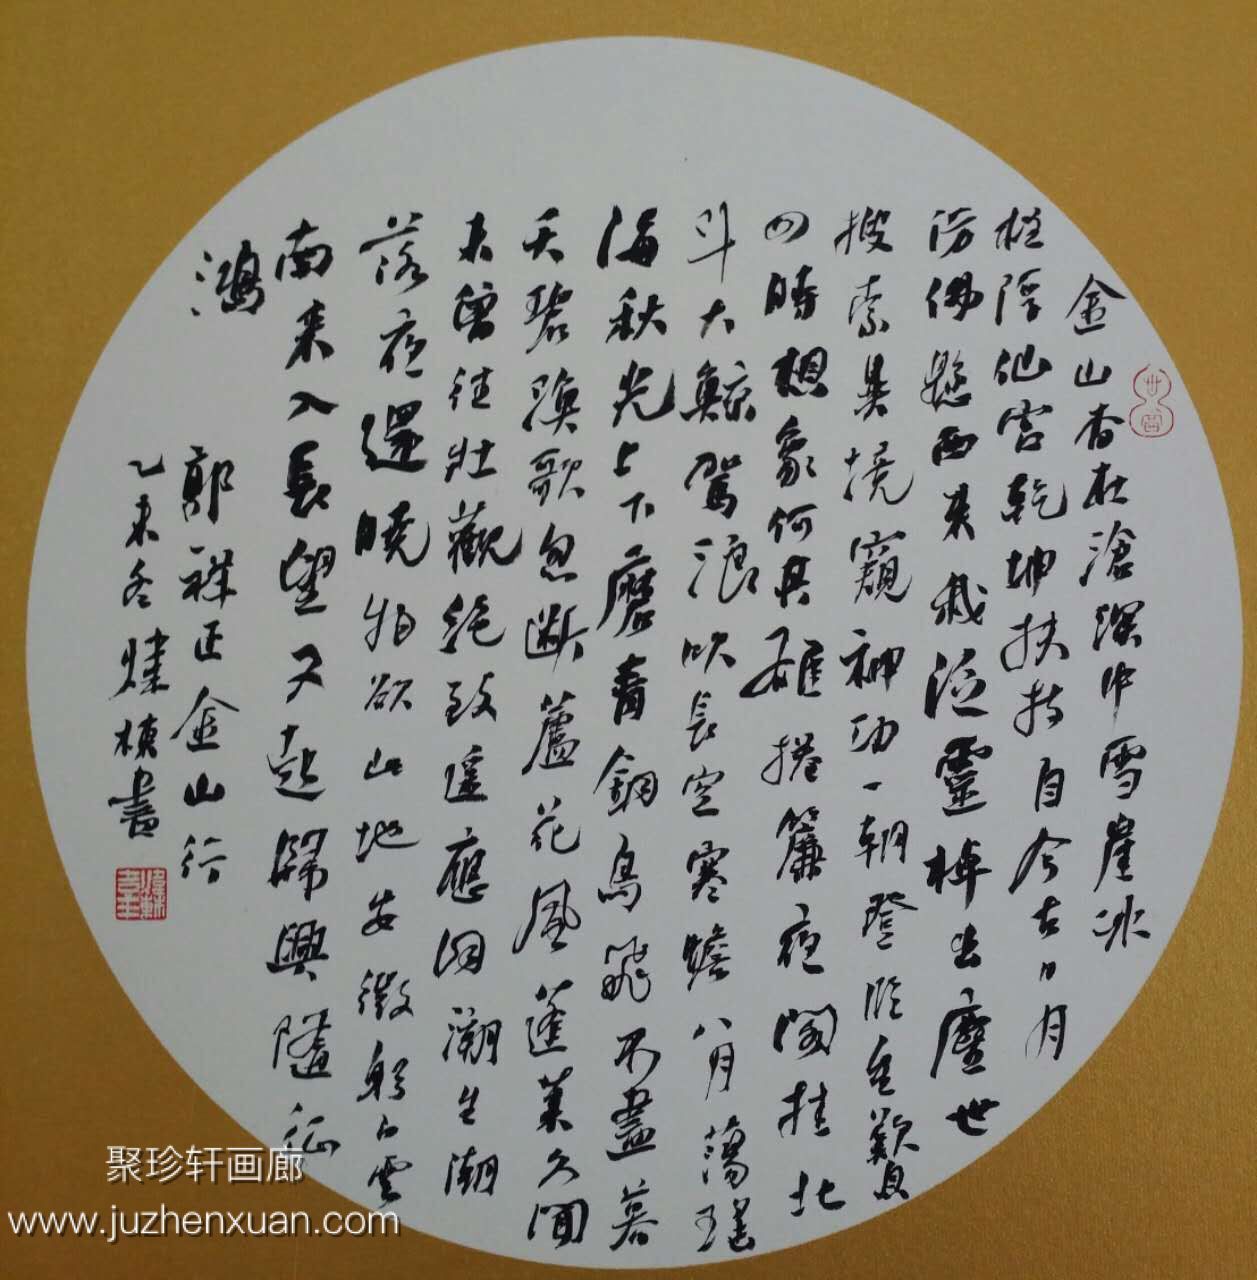 金山杳在滄溟中雪崖冰
柱浮仙宮乾坤扶持自今古日月
仿佛懸西東我泛靈槎出塵世
搜索異境窺神功一朝登臨重歎息
四時想象何其雄捲簾夜閣挂北
斗大鯨駕浪吹長空寒蟾八月蕩瑤
海秋光上下磨青銅鳥飛不盡暮
天碧漁歌忽斷蘆花風蓬萊久聞
未曾往壯觀絕致遙應同潮生潮
落夜還曉物欲此地安微躬白雲
南來入長望又起歸興隨征
鴻
郭祥正金山行
乙未冬煒楨書
聚珍轩画廊
www.juzhenxuan.com